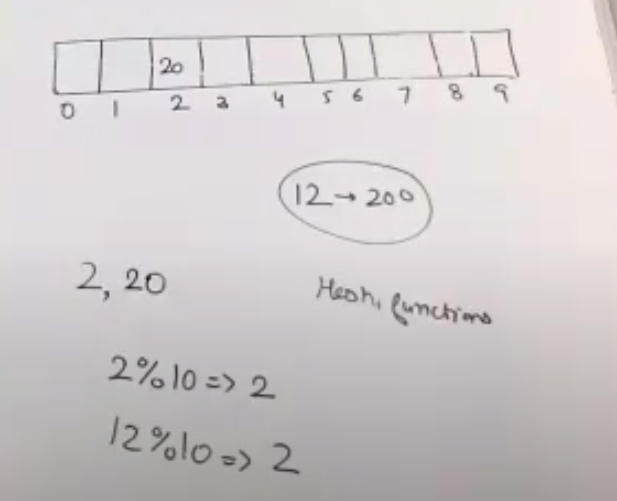 20
0 1 2 3 4 5 6 7 8 9
12 → 200
2, 20
Hash, functions
2%10 => 2
12%10 => 2